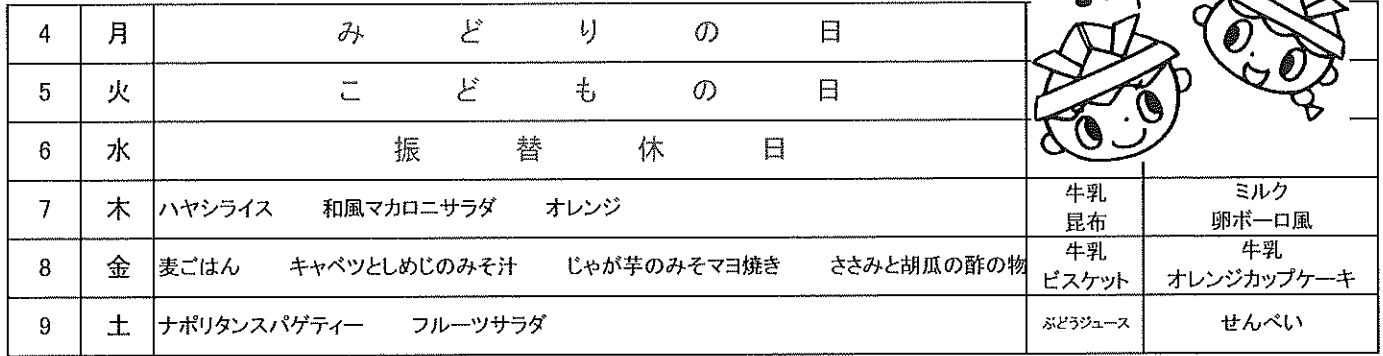 4 月 みどりの日
5 火 こどもの日
6 水 振替休日
7 木 ハヤシライス 和風マカロニサラダ オレンジ 牛乳 昆布 ミルク 卵ボーロ風
8 金 麦ごはん キャベツとしめじのみそ汁 じゃが芋のみそマヨ焼き ささみと胡瓜の酢の物 牛乳 ビスケット 牛乳 オレンジカップケーキ
9 土 ナポリタンスパゲティー フルーツサラダ ぶどうジュース せんべい